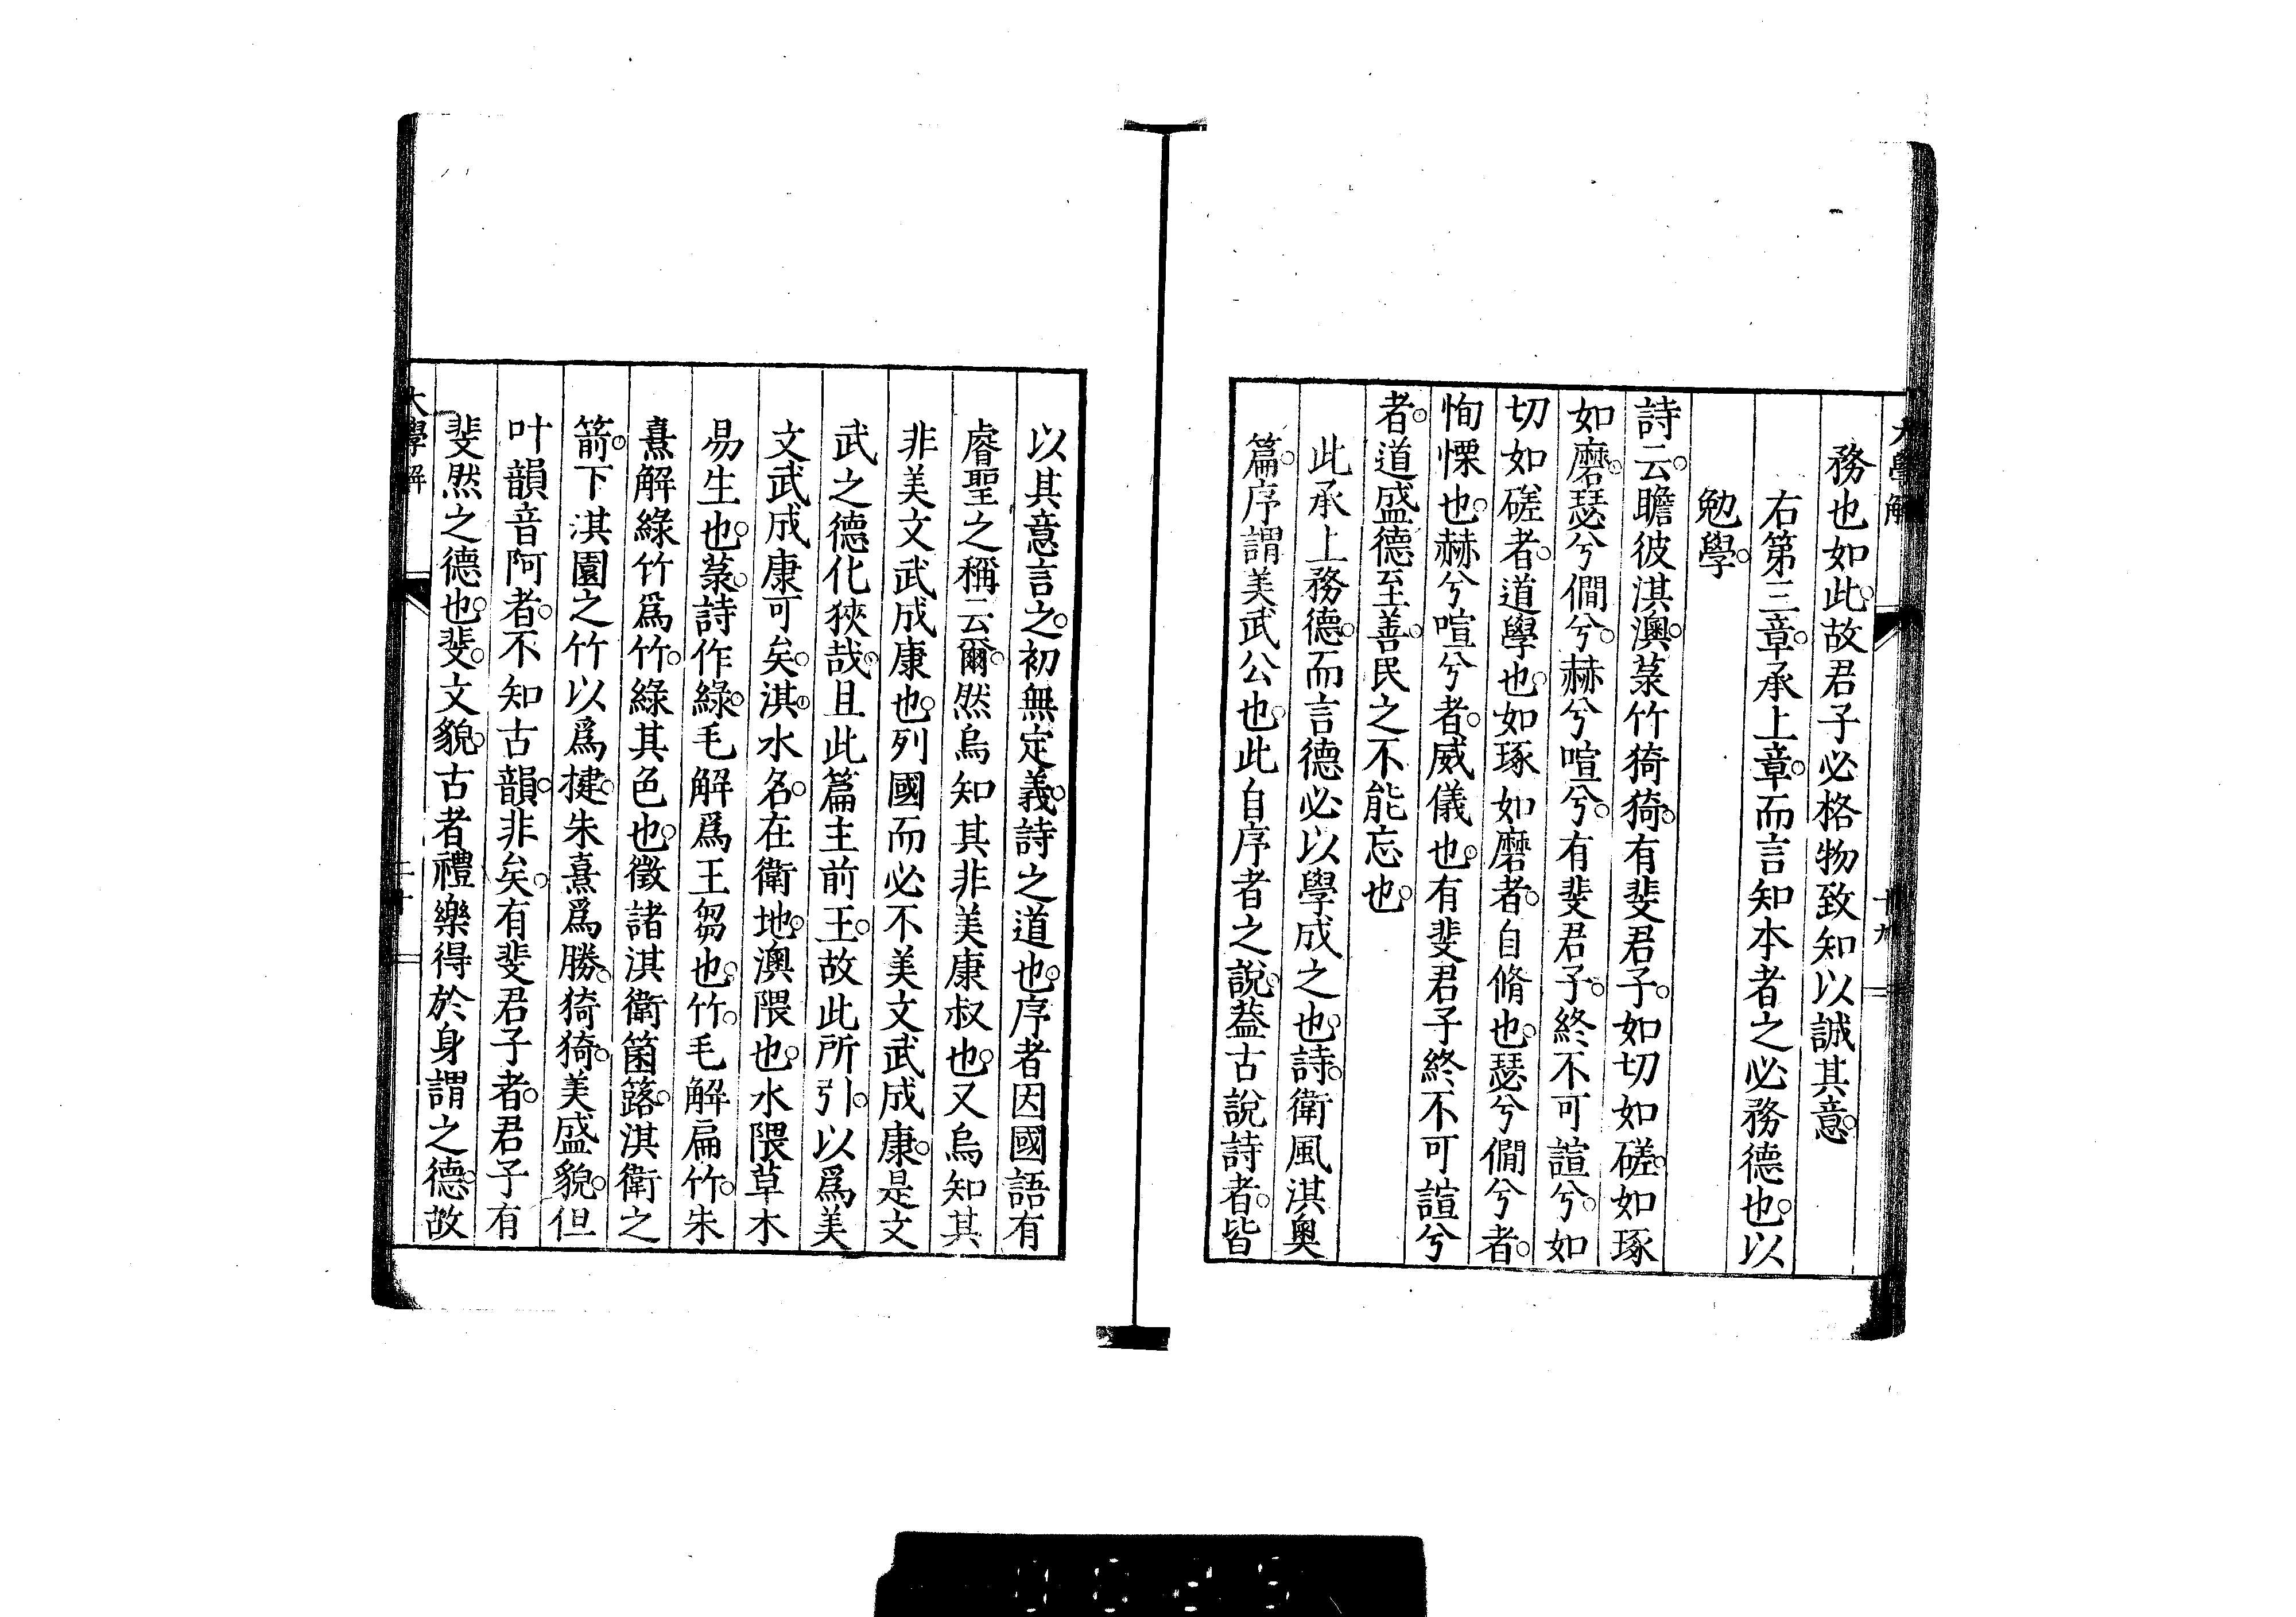 大學解 十九
務也如此。故君子必格物致知以誠其意。
右第三章。承上章。而言知本者之必務德也。以
勉學。
詩云。瞻彼淇澳。菉竹猗猗。有斐君子。如切如磋。如琢
如磨。瑟兮僩兮。赫兮喧兮。有斐君子。終不可諠兮。如
切如磋者。道學也。如琢如磨者。自脩也。瑟兮僩兮者。
恂慄也。赫兮喧兮者。威儀也。有斐君子終不可諠兮
者。道盛德至善。民之不能忘也。
此承上務德。而言德必以學成之也。詩。衛風淇奥
篇。序謂美武公也。此自序者之說。蓋古說詩者。皆
以其意言之。初無定義。詩之道也。序者因國語有
睿聖之稱云爾。然烏知其非美康叔也。又烏知其
非美文武成康也。列國而必不美文武成康。是文
武之德化狹哉。且此篇主前王。故此所引。以爲美
文武成康可矣。淇。水名。在衛地。澳隈也。水隈草木
易生也。菉。詩作綠。毛解爲王芻也。竹。毛解扁竹。朱
熹解綠竹爲竹。綠其色也。徵諸淇衛箘簬。淇衛之
箭。下淇園之竹以爲揵。朱熹爲勝。猗猗。美盛貌。但
叶韻音阿者。不知古韻。非矣。有斐君子者。君子有
斐然之德也。斐。文貌。古者禮樂得於身謂之德。故
大學解 二十